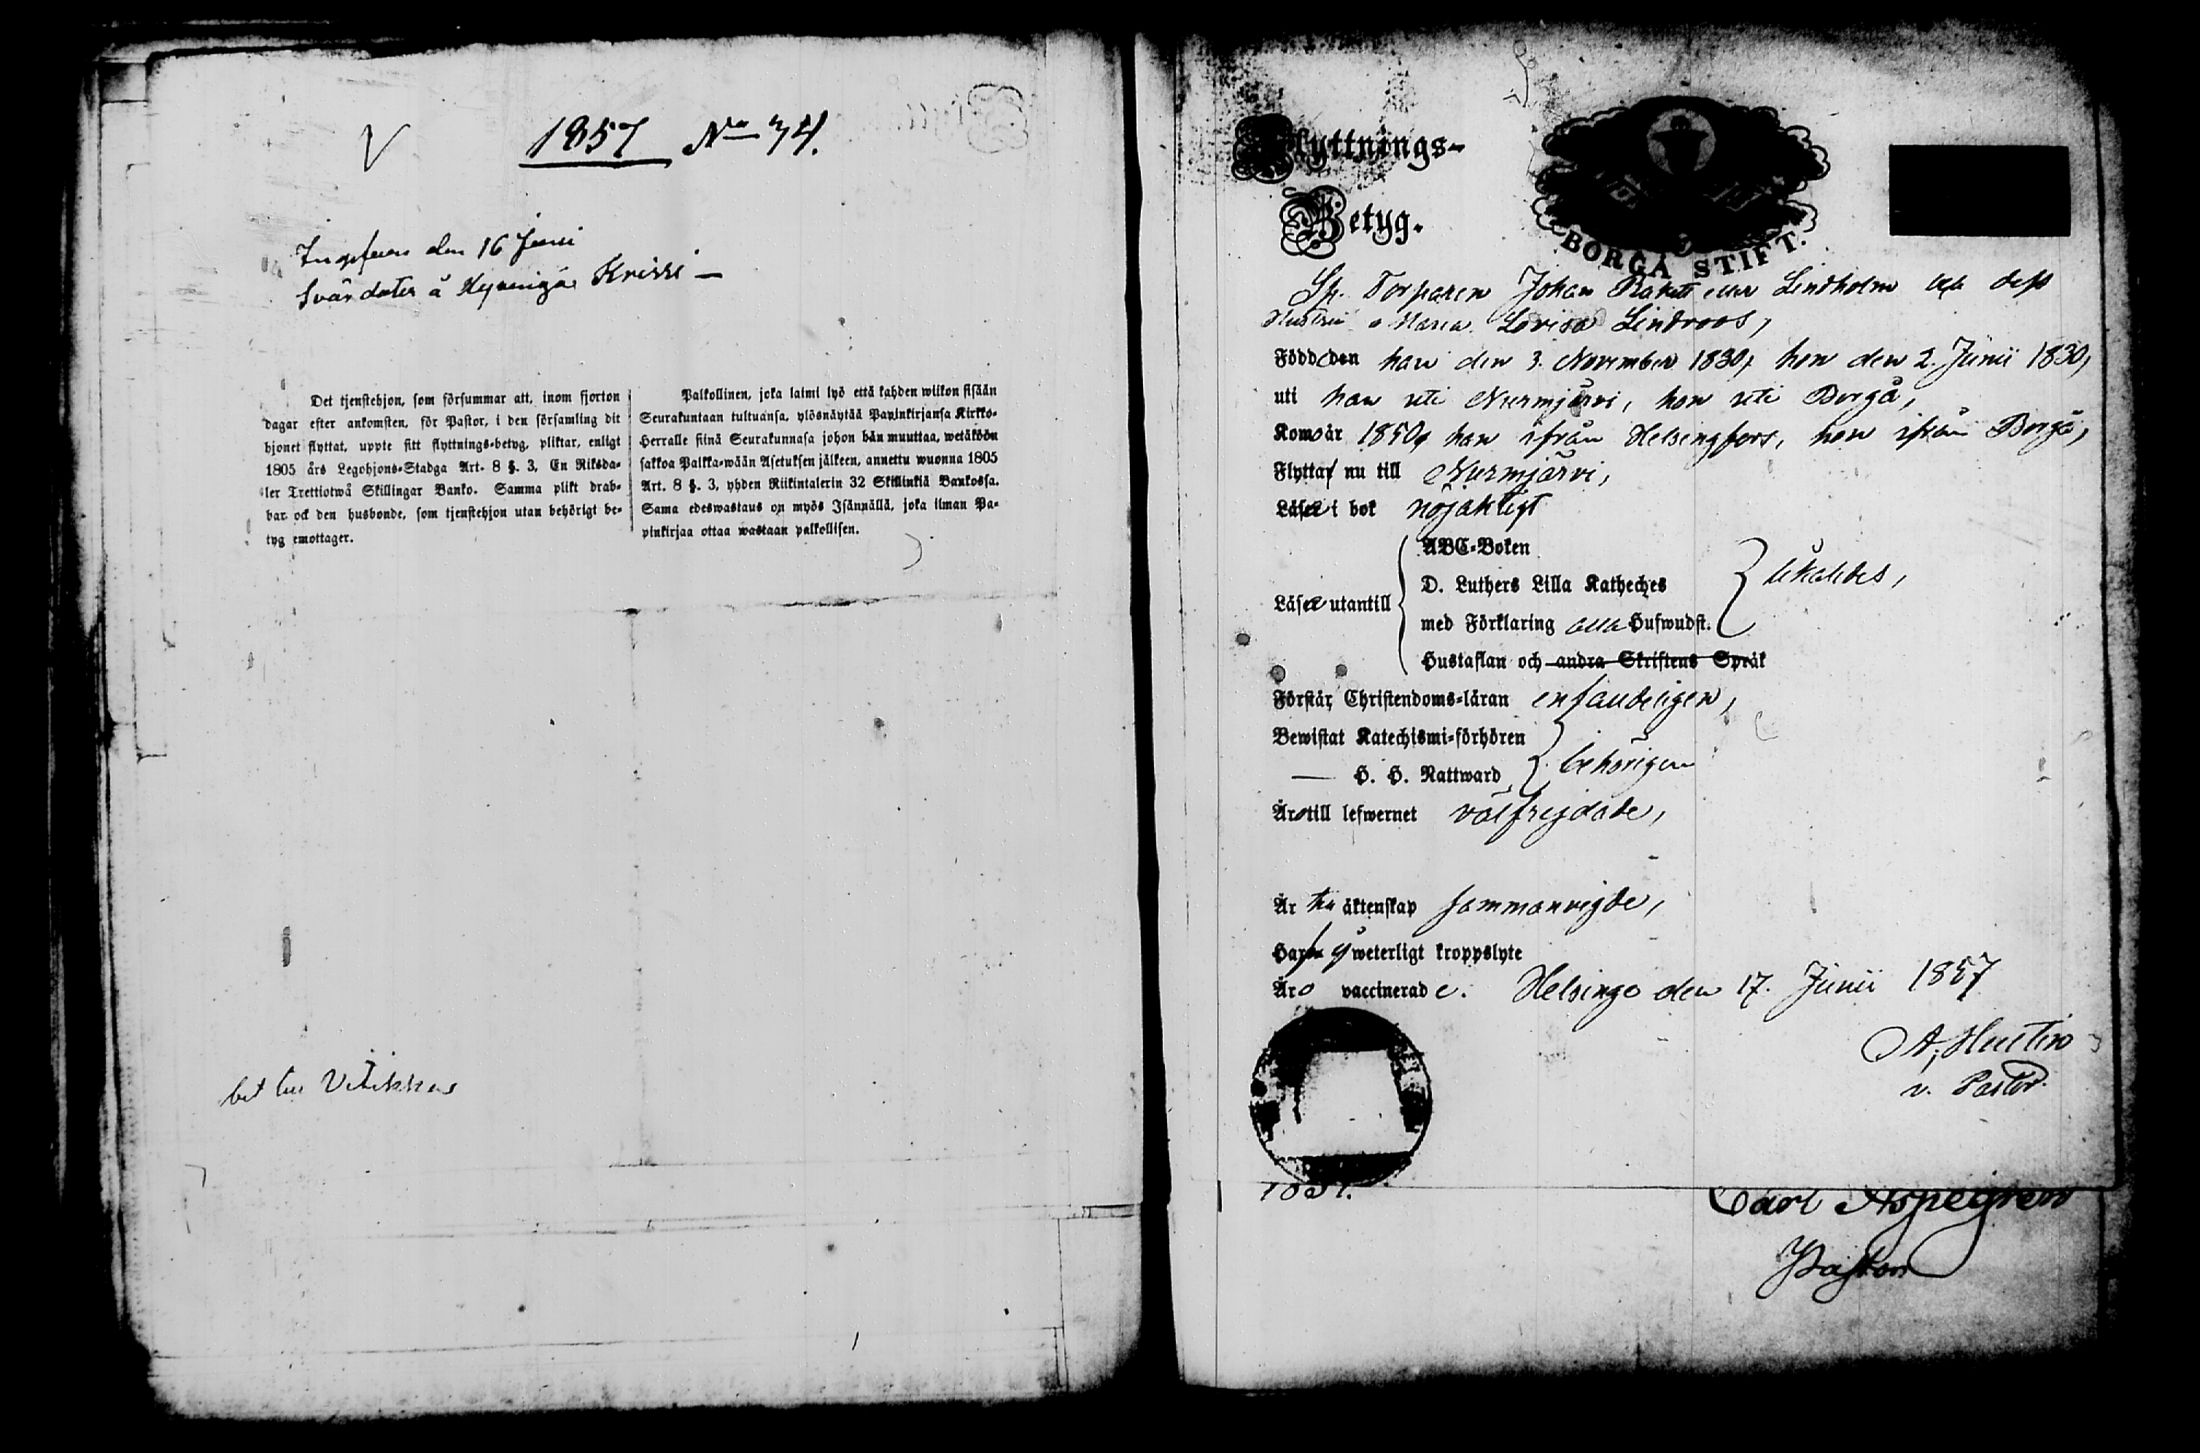 1857 No 74.
den 16 Juni
å
Det tjenstehjon, som försummar att, inom fjorton
dagar efter ankomsten, för Pastor, i den församling dit
hjonet flyttat, uppte sitt flyttnings-betyg, pliktar, enligt
1805 års Legohjons-Stadga Art. 8 §. 3, En Riksda-
ler Trettiotwå Skillingar Banko. Samma plikt drab-
bar ock den husbonde, som tjenstehjon utan behörigt be-
tyg emottager.
Palkollinen, joka laimi lyö että kahden wiikon sisään
Seurakuntaan tultuansa, ylösnäytää Papinkirjansa Kirkko-
Herralle siinä Seurakunnasa johon hän muuttaa, wetäköön
sakkoa Palkka-wään Asetuksen jälkeen, annettu wuonna 1805
Art. 8 §. 3, yhden Riikintalerin 32 Skillinkiä Bankossa.
Sama edeswastaus on myös Isännällä, joka ilman Pa-
pinkirjaa ottaa wastaan palkollisen.
Flyttnings-
Betyg.
BORGÅ STIFT.
Torparen Johan eller Lindholm och dess
Hustru Maria Lovisa Lindroos,
Födde den han den 3. November 1830, hon den 2. Junii 1830,
uti han uti Nurmjärvi, hon uti Borgå,
Komo år 1850, han ifrån Helsingfors, hon ifrån Borgå,
Flytta nu till Nurmjärvi,
Läsa i bok nöjaktigt
Läsa utantill
ABC-Boken
D. Luthers Lilla Katheches
med Förklaring alla Hufwudst.
likaledes,
Hustaflan och andra Skriftens Språk
Förstår Christendoms-läran enfaldeligen,
Bewistat Katechismi-förhören
— H. H. Nattward
behörigen
Äro till lefwernet välfrejdade,
Är till äktenskap sammanvigde,
Ha ej weterligt kroppslyte
Äro vaccinerade. Helsinge den 17. Junii 1857
v. Pastor.
Carl Aspegren
Pastor